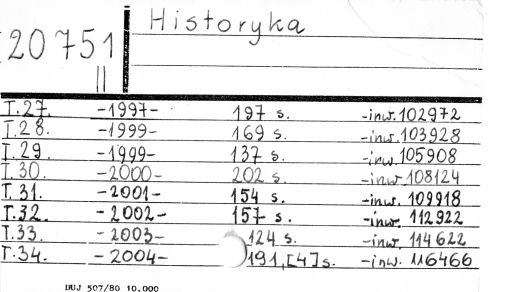 Historyka
20751
II
T.27. -1997- 197 s. -inw. 102972
T.28. -1999- 169 s. -inw. 103928
T.29. -1999- 137 s. -inw. 105908
T.30. -2000- 202 s. -inw. 108124
T.31. -2001- 154 s. -inw. 109918
T.32. -2002- 157 s. -inw. 112922
T.33. -2003- 124 s. -inw. 114622
T.34. -2004- 191,[4]s. -inw. 116466
DUJ 507/80 10.000